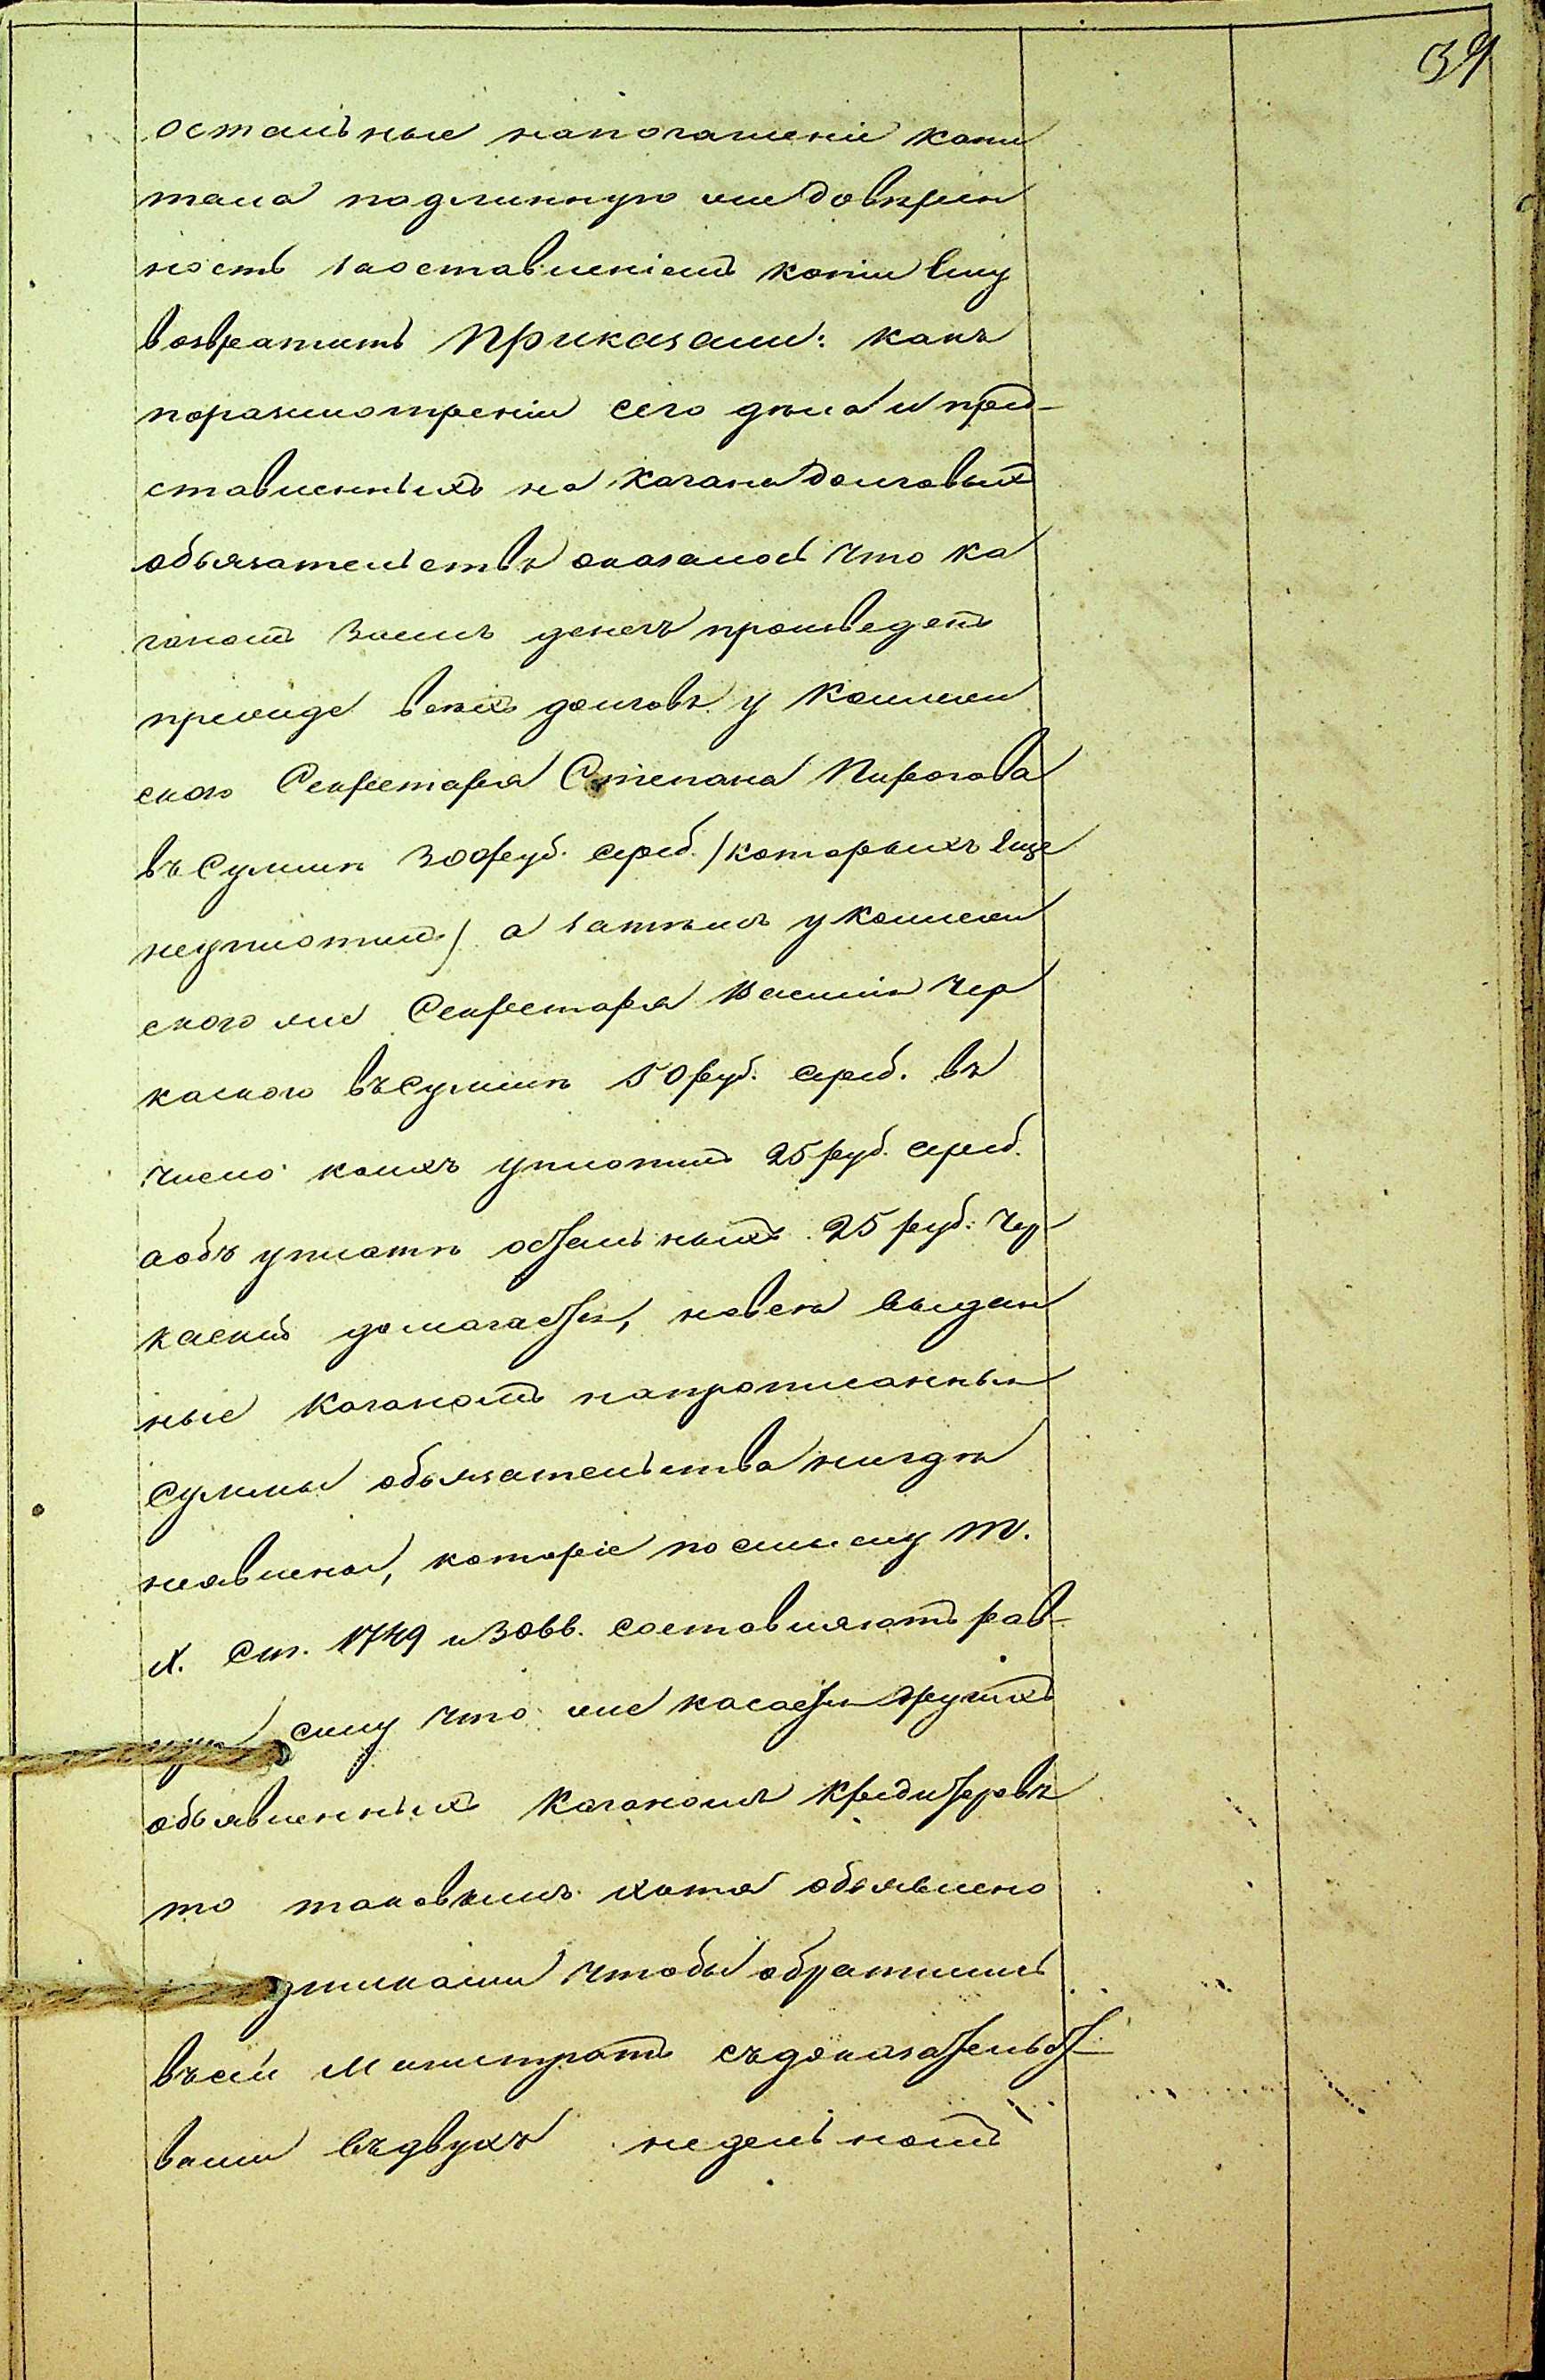 39
остальные напогашеніе капи
тала подлинную же доверен
ность заоставленіемъ копіи ему
возвратить Приказали: какъ
поразсмотреніи сего дѣла и пред-
ставленныхъ на Кагана долговыхъ
обязательствъ оказалось что Ка
ганомъ Заемъ денегъ произведенъ
прежде всѣхъ долговъ у Коллеж
скаго Секретаря Степана Пирогова
въ Суммѣ 300 руб. сереб. /которыхъ еще
неуплотилъ/ а затѣмъ у Коллеж
скаго же Секретаря Василія Чер
каскаго въ Суммѣ 50 руб. сереб. въ
число коихъ уплотилъ 25 руб. сереб.
аобъ уплатѣ остальныхъ 25 руб: Чер-
каскій домагается, новсѣ выдан
ные Каганомъ напрописанныя
Суммы обязательства нигдѣ
неявлены, которіе посиллу Т.
X. Ст. 1749 и 2066. составляютъ рав-
ную силу что же касается другихъ
объявленныхъ Каганомъ Кредиторовъ
то таковымъ хотя объявлено
чтобы обратились
въ сей Магистратъ съдоказательст-
вами въдвухъ недельномъ